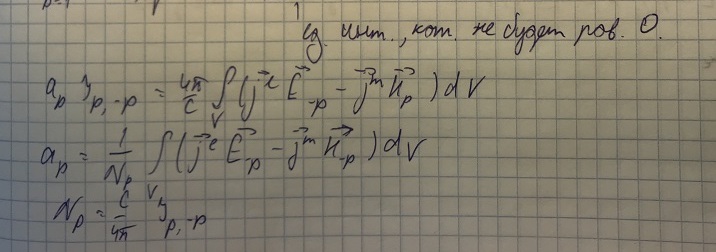 ед. инт., кот. не будет рав. 0.
a_p ℑ_{p,-p} = 4π/c ∫_V (j⃗^e E⃗_{-p} - j⃗^m H⃗_p) dV
a_p = 1/N_p ∫_V (j⃗^e E⃗_{-p} - j⃗^m H⃗_{-p}) dV
N_p = c/4π ℑ_{p,-p}